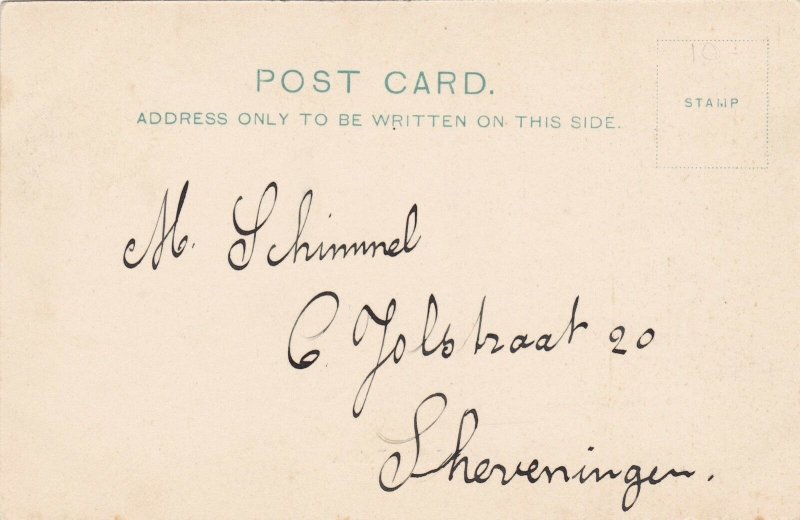 POST CARD.
ADDRESS ONLY TO BE WRITTEN ON THIS SIDE.
STAMP
M. Schimmel
C Jolstraat 20
Sheveningen.